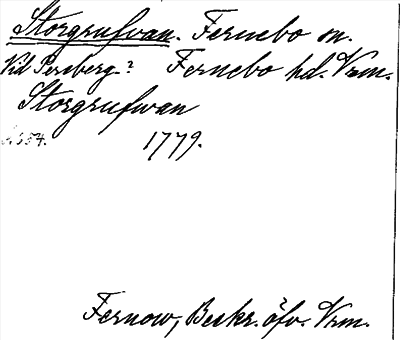 Storgrufvan. Fernebo sn.
Vid Persberg? Fernebo hd. Vrm.
Storgrufvan
s. 554. 1779.
Fernow, Beskr. öfv. Vrm.